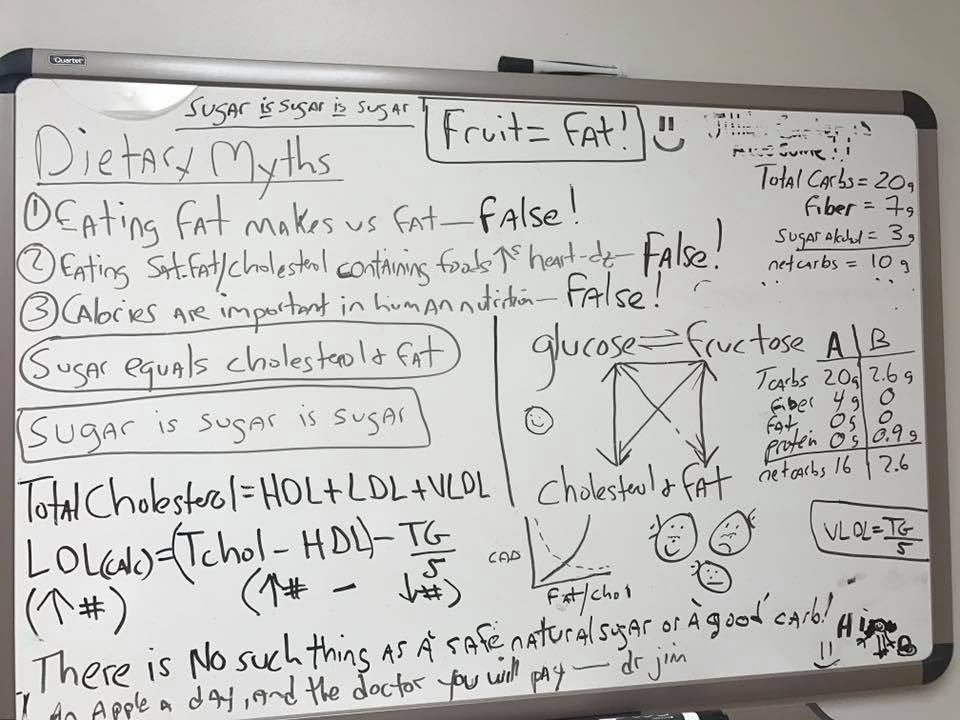 Quartet
Sugar is sugar is sugar
Fruit = Fat!
Dietary Myths
Total Carbs = 20g
Fiber = 7g
Sugar alcohol = 3g
net carbs = 10g
① Eating Fat makes us fat — False!
② Eating Sat. Fat/cholesterol containing foods ↑s heart-dz — False!
③ Calories are important in human nutrition — False!
Sugar equals cholesterol & fat
Sugar is sugar is sugar
glucose ⇌ fructose
Cholesterol & Fat
A | B
Tcarbs 20g | 2.6g
Fiber 4g | 0
Fat 0g | 0
protein 0g | 0.9g
netcarbs 16 | 2.6
Total Cholesterol = HDL + LDL + VLDL
LDL(calc) = (Tchol - HDL) - TG/5
(↑#) (↑# - ↓#)
CAD
Fat/chol
VLDL = TG/5
There is No such thing as a "safe natural sugar or a 'good' carb!
Hi
An Apple a day, and the doctor you will pay — dr jim